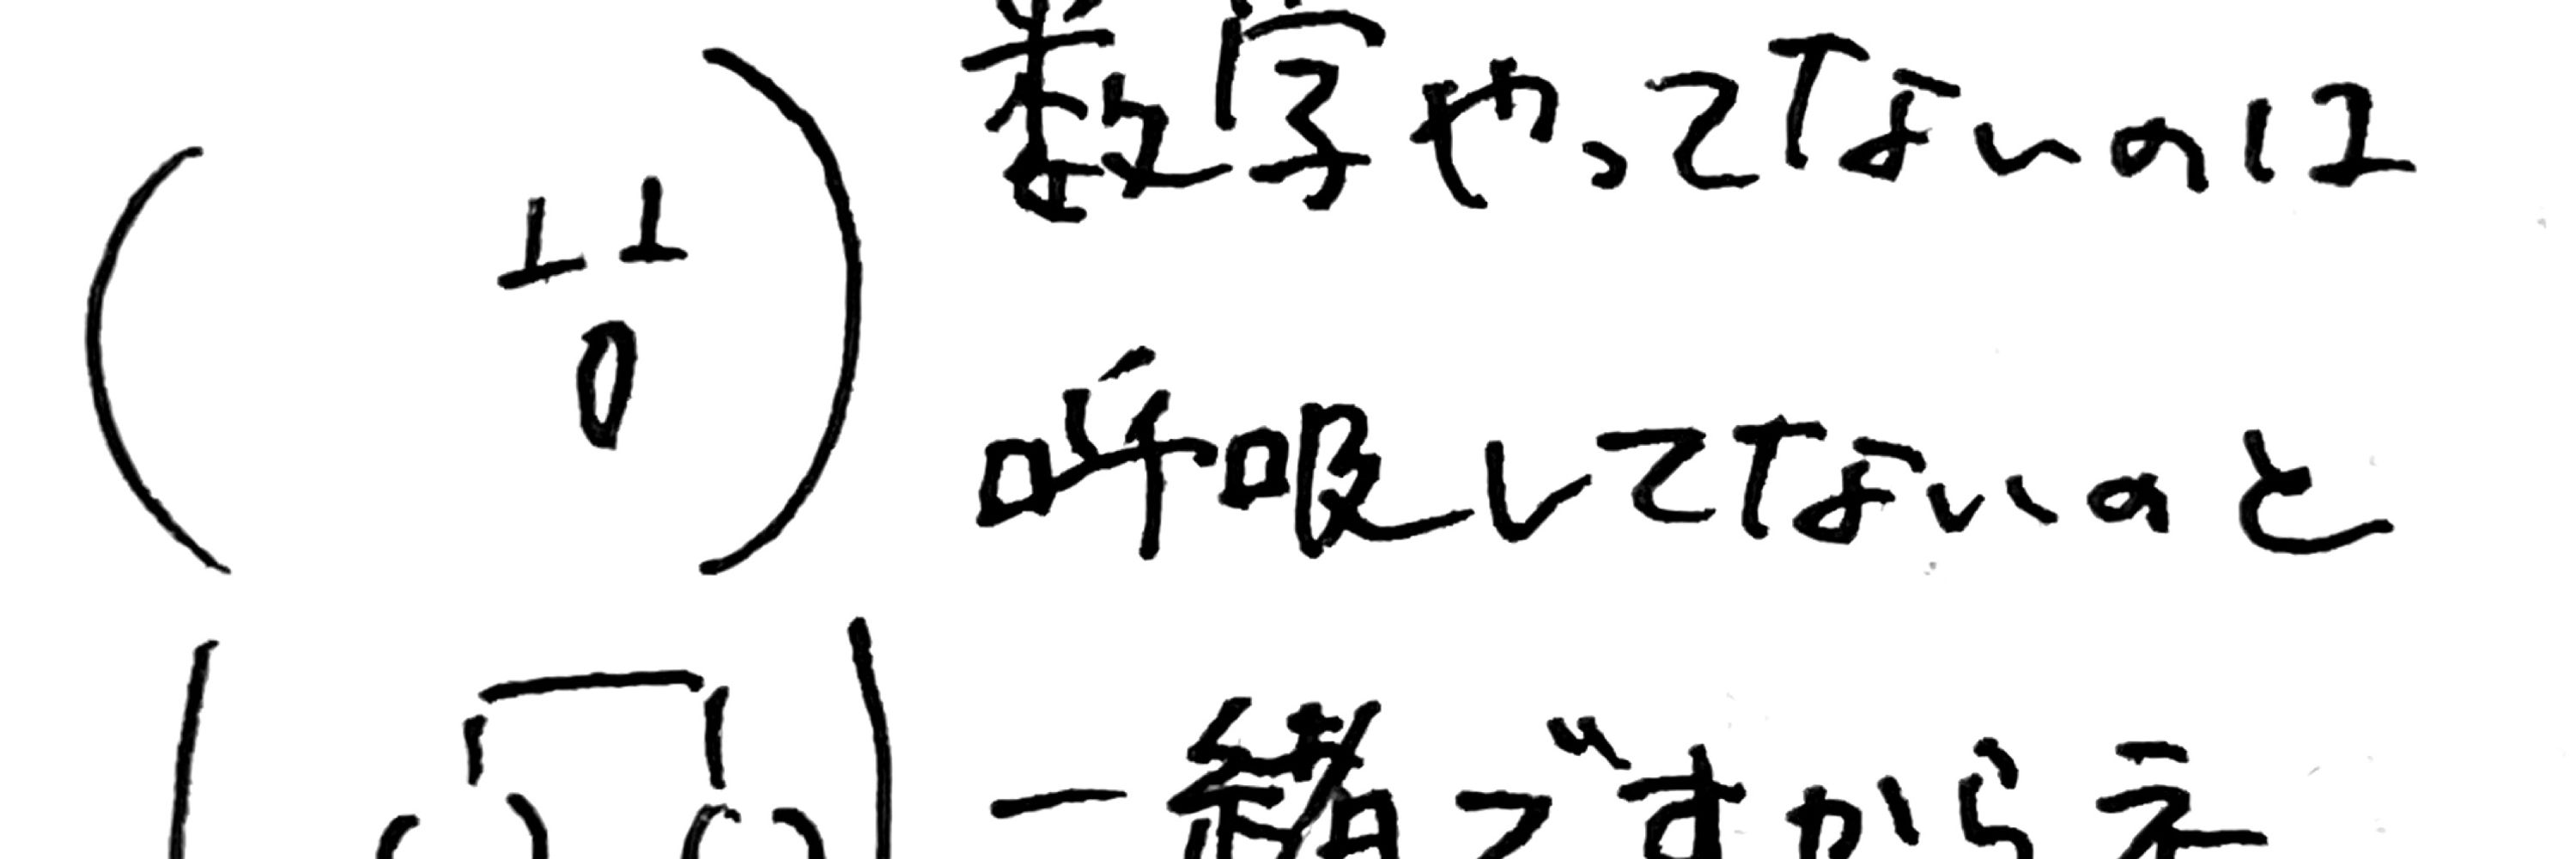 数学やってTないのは
呼吸してTないのと
一緒ですからえ